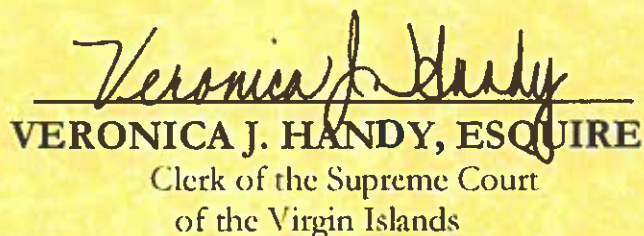 Veronica J. Handy
VERONICA J. HANDY, ESQUIRE
Clerk of the Supreme Court
of the Virgin Islands